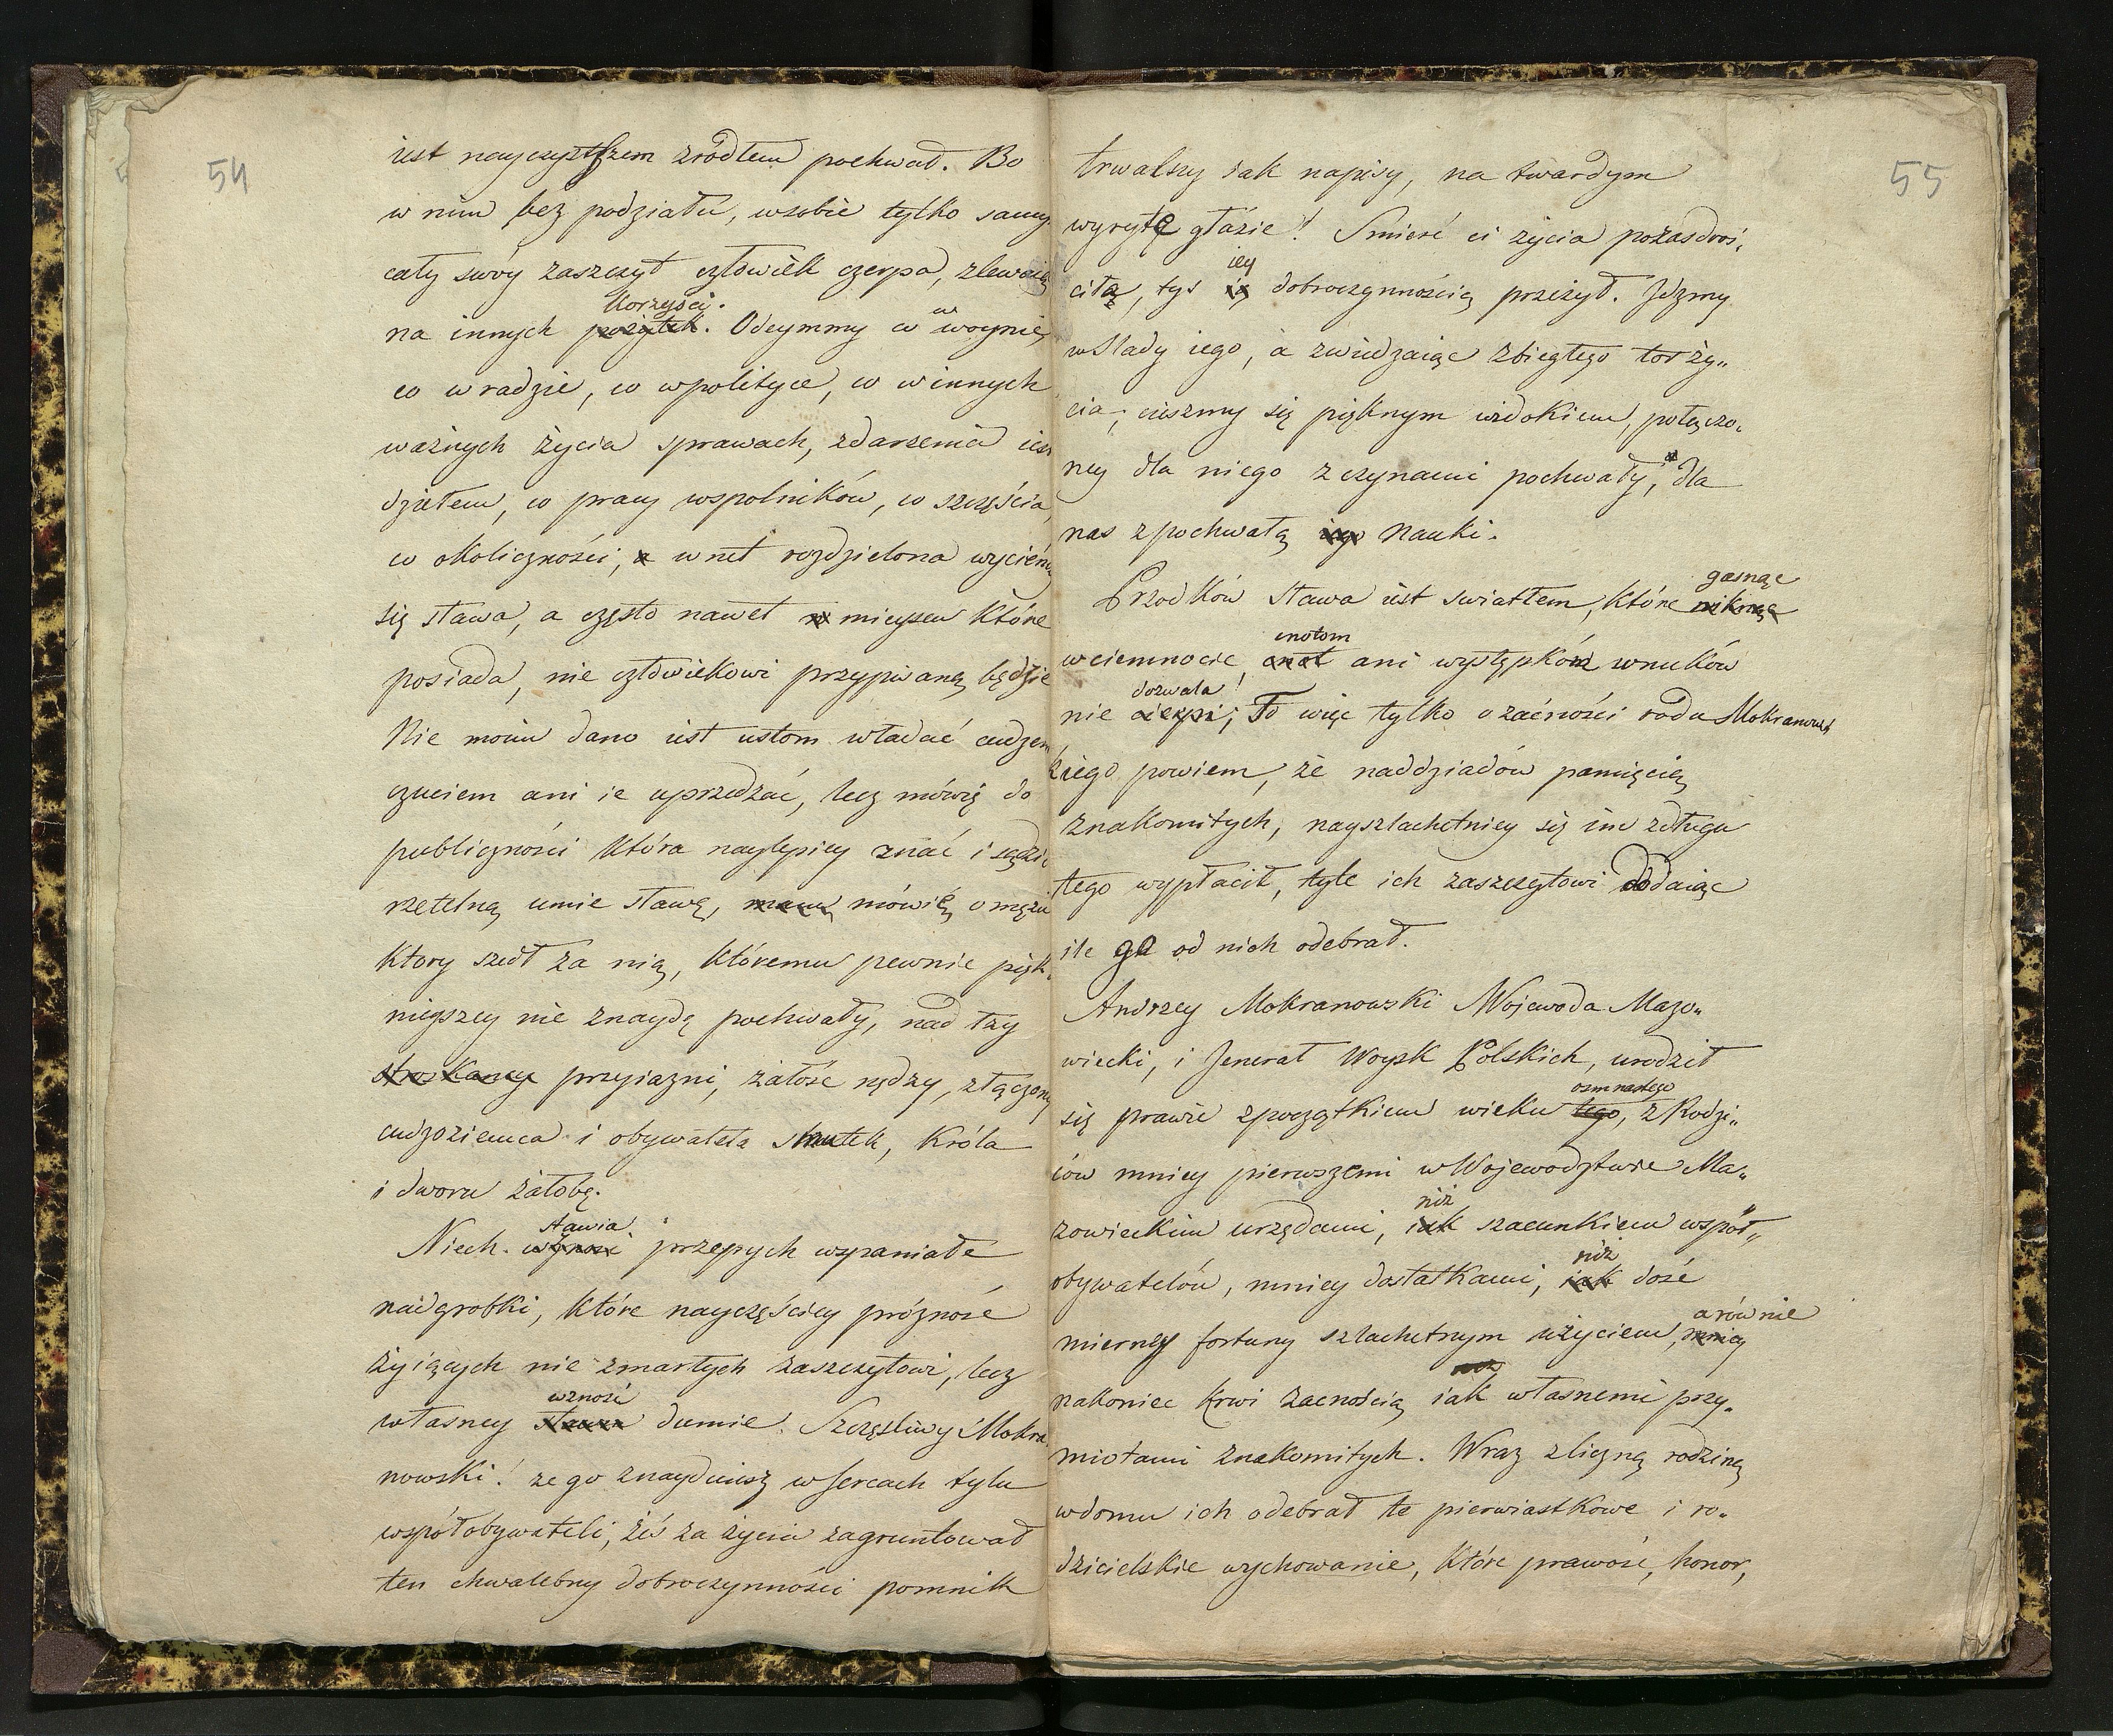 54
iest nayczystszem zrodłem pochwał. Bo
w nim bez podziału, w sobie tylko samym
cały swóy zaszczyt człowiek czerpa, zlewaiąc
korzyści.
na innych pożytek. Odeymmy co w woynie,
co w radzie, co w polityce, co w innych
ważnych życia sprawach, zdarzenia iest
dziełem, co pracy wspolników, co szczęścia,
co okoliczności, wnet rozdzielona wycień
się sława, a często nawet mieyscu które
posiada, nie człowiekowi przypisaną będzie
Nie moim dano iest ustom władać cudzem
czuciem ani ie uprzedzać, lecz mówię do
publiczności która naylepiey znać i sądzić
rzetelną umie sławę, mówię o mężu
ktory szedł za nią, któremu pewnie pięk-
nieyszey nie znaydę pochwały, nad łzy
stroskaney przyiazni, żałość nędzy, złączony
cudzoziemca i obywatela smutek, Króla
i dworu żałobę.
stawia
Niech wznosi przepych wspaniałe
nadgrobki, które nayczęściey próżność
żyiących nie zmarłych zaszczytowi, lecz
wznosi
własney stawia dumie. Szczęśliwy Mokra
nowski! że go znayduiesz w sercach tylu
współobywateli, żeś za życia zagruntował
ten chwalebny dobroczynności pomnik
55
trwalszy iak napisy, na twardym
wyryte głazie! Smierć ci życia pozazdroś-
iey
ciła, tyś ią dobroczynnością przeżył. Idzmy
w slady iego, a zwiedzaiąc zbiegłego tor ży„
cia, cieszmy się pięknym widokiem, połączo-
ney dla niego z czynami pochwały, dla
nas z pochwałą iego nauki.
gasnąc
Przodków sława iest swiatłem, które niknąc
cnotom
w ciemnocie cnot ani występkom wnuków
dozwala!
nie cierpi; To więc tylko o zacności rodu Mokranows
kiego powiem, że naddziadów pamięcią
znakomitych, nayszlachetniey się im z długu
tego wypłacił, tyle ich zaszczytowi dodaiąc
ile go od nich odebrał.
Andrzey Mokranowski Wojewoda Mazo„
wiecki, i Jenerał Woysk Polskich, urodził
osmnastego
się prawie z początkiem wieku tego, z Rodzi„
ców mniey pierwszemi w Wojewodztwie Ma„
niż
zowieckim urzędami, iak szacunkiem współ„
niż
obywatelów, mniey dostatkami, iak dość
a równie
mierney fortuny szlachetnym użyciem, mniey
niż
nakoniec krwi zacnością iak własnemi przy-
miotami znakomitych. Wraz z liczną rodziną
w domu ich odebrał te pierwiastkowe i ro-
dzicielskie wychowanie, które prawość, honor,